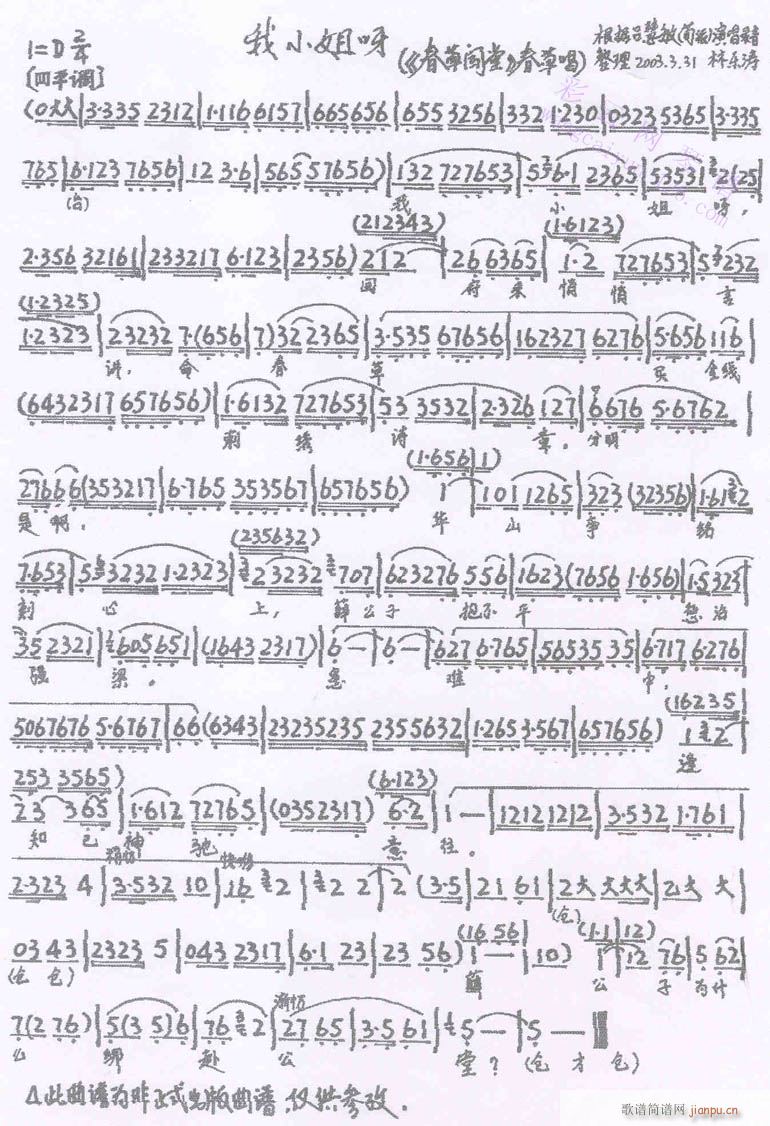 我小姐呀
1=D 2/4 (《春草闯堂》春草唱) 根据吕慧敏(荀派)演唱录音
[四平调] 整理 2003.3.31 林东涛
(0大大|3·335 2312|1·116 6157|665656|655 3256|332 1·230|0323 5365|3·335
765|6·123 7656|12 3·6|565 57656)|132 727653|5 6·1 2365|53531 2(25|
(台) 我 小 姐 呀,
(212343) (1·6123)
2·356 32161|233217 6·123|2356) 212|26 6365|1·2 727653|5 3232|
回 府 来 悄 悄 言
(1·2325)
1·2323|23232 7·(656|7)32 2365|3·535 67656|162327 6276|5·656 116|
讲, 命 春 草 买 金线
(6432317 657656)|1·6132 727653|53 3532|2·326 127|6676 5·6762|
刺 绣 诗 章, 分明
(1·656|1)
27666(353217|6·765 353567|657656) 1|101 1265|323 (32356)|1·61 2
是啊, 华 山 争 铭
(235632)
7·653|5 3232 1·2323|2 3232 707|623276 556|1623(7656 1·656)|1·5323|
刻 心 上, 薛公子 抱不平 惩治
35 2321|605651|(1643 2317)|6—|6—|627 6·765|56535 35|6·717 6·276|
强 梁, 急 难 中,
(16235
5067676 5·6767|66(6343|23235235 2355632|1·265 3·567|657656) 1 2|
逢
253 3565) (6·123)
23 365|1·612 72765|(0352317) 6·2|1—|1212 1212|3·532 1·761|
知 己 神 驰 意 往。
稍慢 快慢
2·323 4|3·532 10|16 2|2 2|2 (3·5|21 61|2大 大大大|2大 大|
(仓)
(16 56) (1·1|12)
03 43|2323 5|043 2317|6·1 23|23 56) 1—|10) 1|12 76|5 62|
(仓 仓) 薛 公 子 为什
渐慢
7(2 76)|5(3 5)6|76 2|27 65|3·5 61|5—|5—‖
么 绑 赴 公 堂? (仓 才 仓)
△此曲谱为非正式出版曲谱,仅供参考.
歌谱简谱网 jianpu.cn